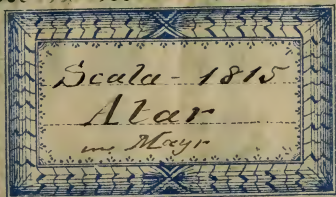 Scala - 1815
Alar
Mayr